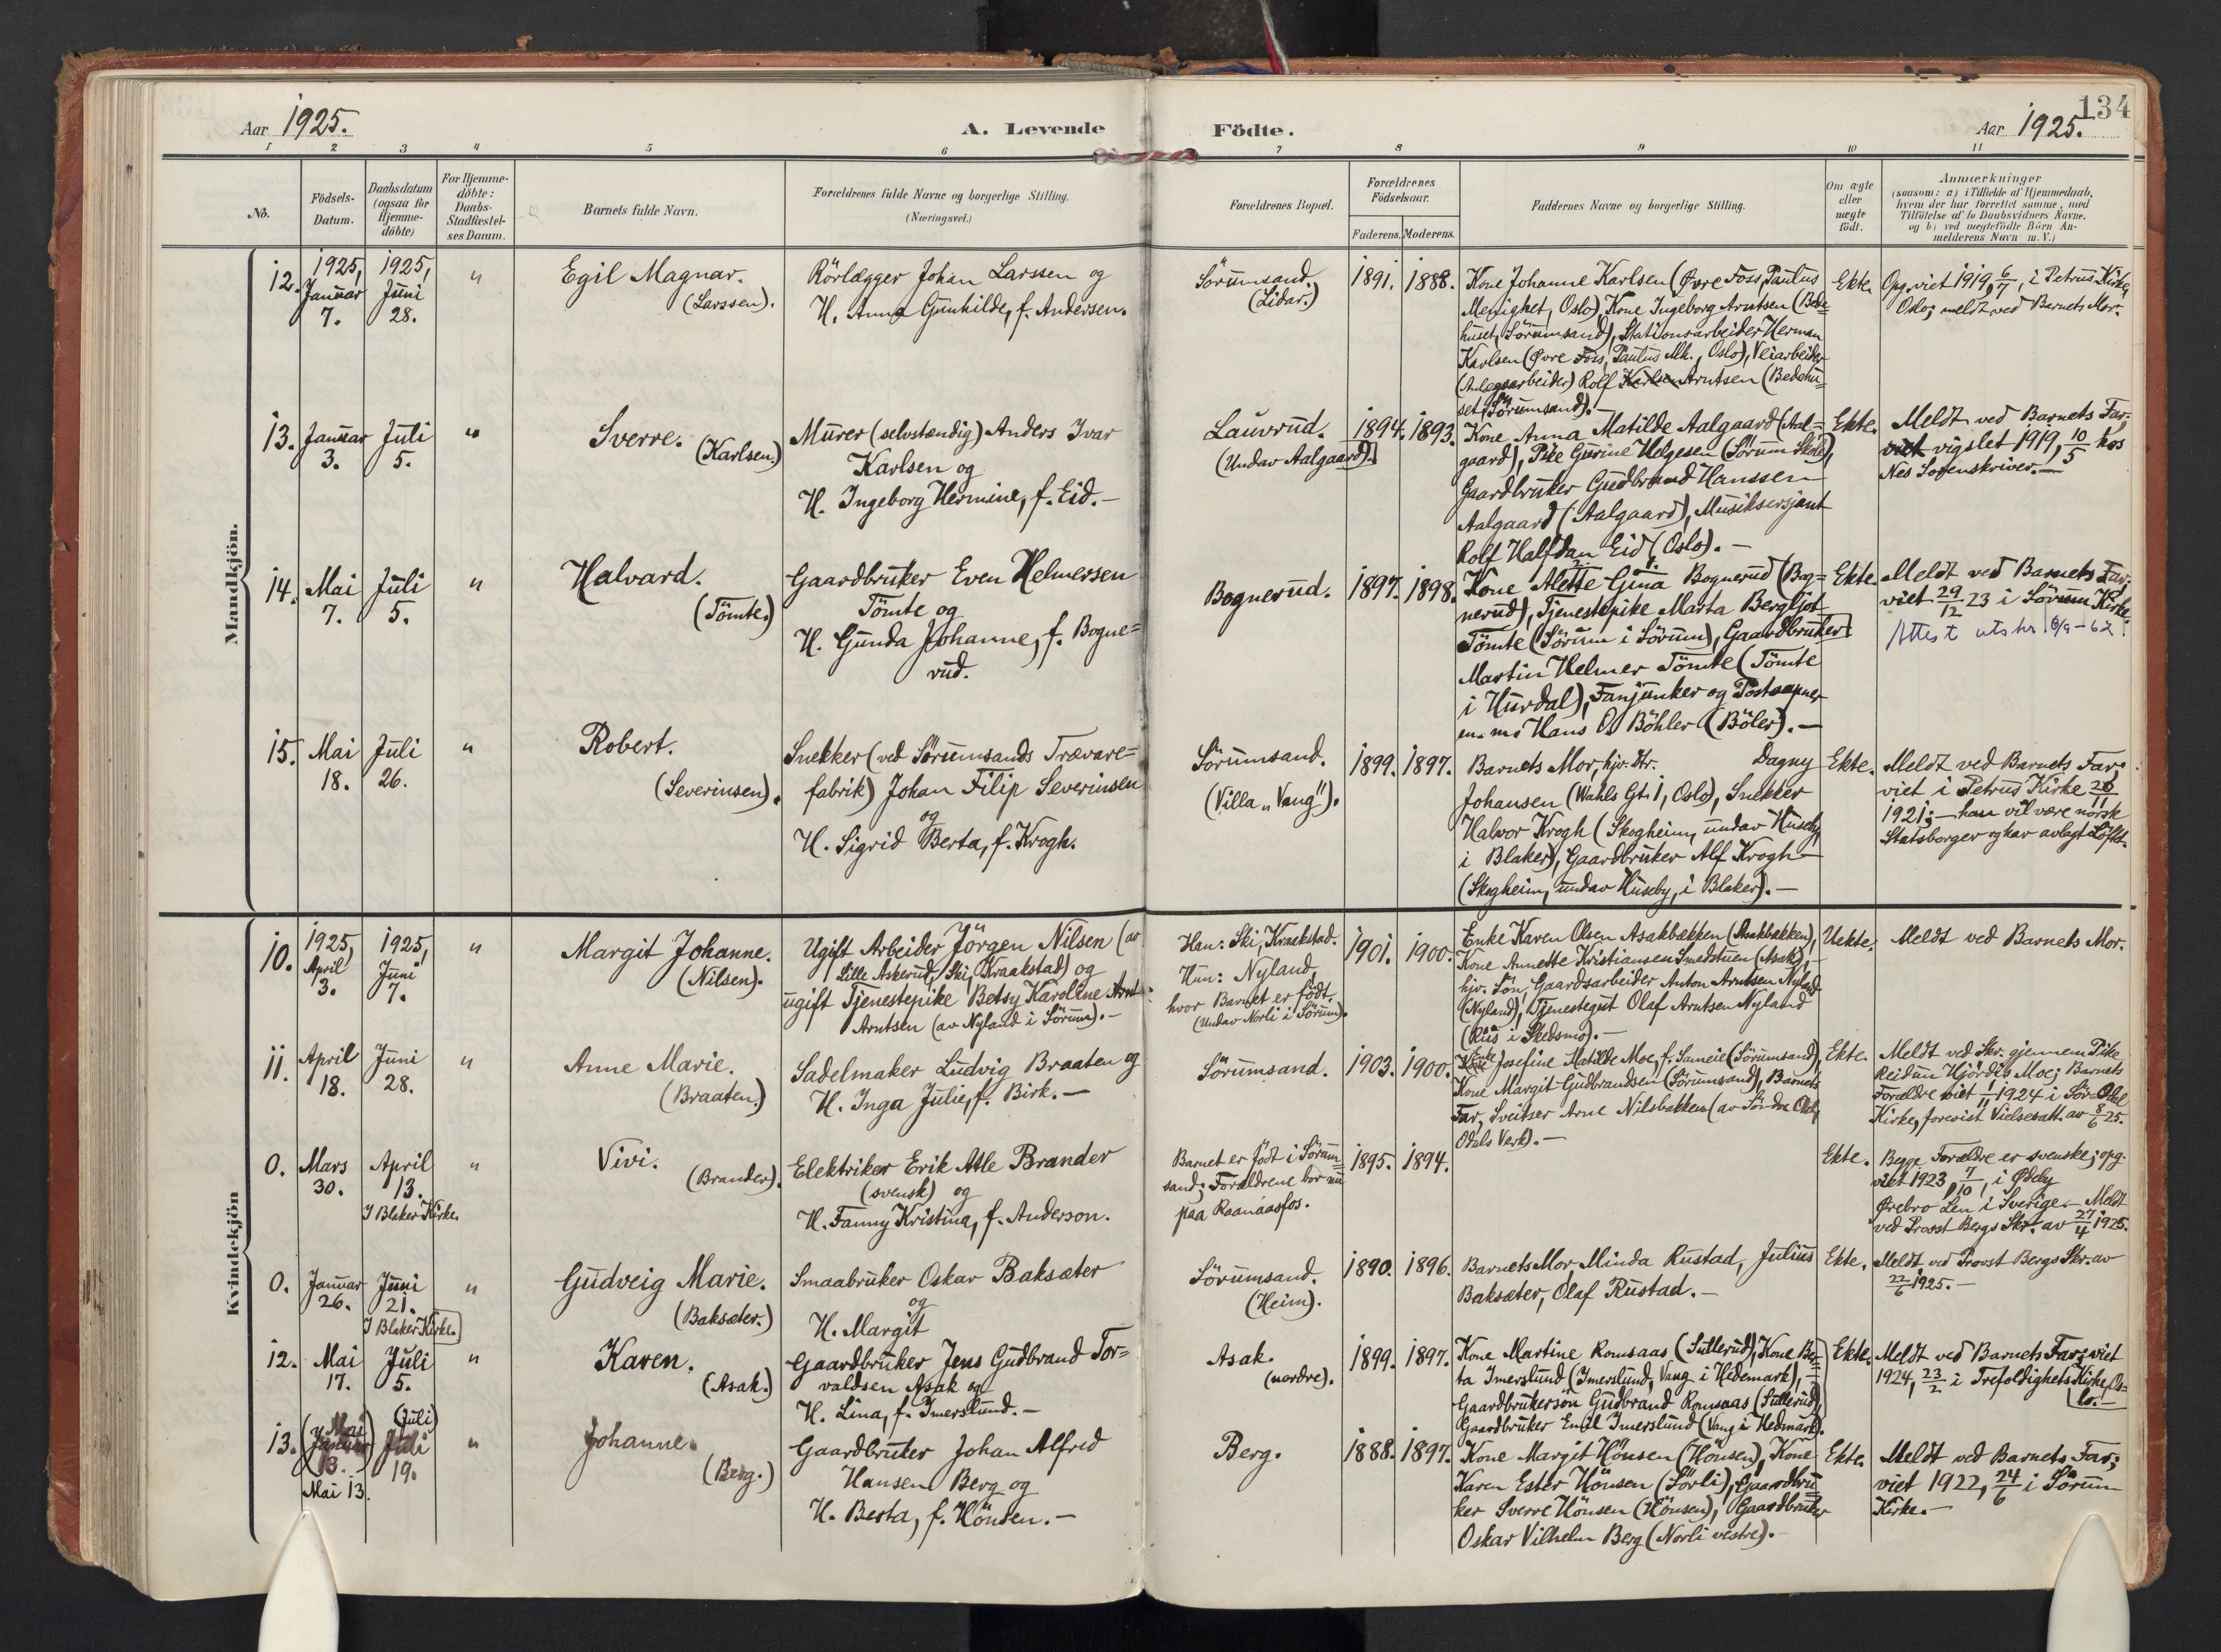 134
Aar 1925.
A. Levende Födte.
Aar 1925.
1 2 3 4 5 6 7 8 9 10 11
No.
Födsels-Datum.
Daabsdatum (ogsaa for Hjemme-döbte)
For Hjemme-döbte: Daabs-Stadfæstel-ses Datum.
Barnets fulde Navn.
Forældrenes fulde Navne og borgerlige Stilling.
(Næringsvei.)
Forældrenes Bopæl.
Forældrenes Födselsaar.
Faderens. Moderens.
Faddernes Navne og borgerlige Stilling.
Om ægte eller uægte födt.
Anmærkninger
(saasom: a) i Tilfælde af Hjemmedaab,
hvem der har forrettet samme, med
Tilföielse af to Daabsvidners Navne,
og b) ved uegtefödte Börn An-
melderens Navn m. V.)
Mandkjön.
12. 1925, Januar 7.
1925, Juni 28.
"
Egil Magnar.
(Larssen).
Rörlægger Johan Larssen og
H. Anna Gunhilde, f. Andersen.
Sörumsand.
(Lidar.)
1891. 1888.
Kone Johanne Karlsen (Øvre Foss, Paulus
Menighet, Oslo), Kone Ingeborg Arntsen (Bede=
huset, Sörumsand), Stationsarbeider Herman
Karlsen (Øvre Foss, Paulus Mh., Oslo), Veiarbeider
(Anlægsarbeider) Rolf Karlsen Arntsen (Bedehu=
set, Sörumsand). —
Ekte.
Opg. viet 1919, 6/7, i Petrus Kirke,
Oslo; meldt ved Barnets Mor.
13. Januar 3.
Juli 5.
"
Sverre.
(Karlsen.)
Murer (selvstændig) Anders Ivar
Karlsen og
H. Ingeborg Hermine, f. Eid. —
Lauvrud.
(Undav Aalgaard).
1894. 1893.
Kone Anna Matilde Aalgaard (Aal=
gaard), Pike Gurine Helgesen (Sörum Skole),
Gaardbruker Gudbrand Hanssen
Aalgaard (Aalgaard), Musiksersjant
Rolf Halfdan Eid (Oslo). —
Ekte.
Meldt ved Barnets Far;
viet vigslet 1919, 10/5 hos
Nes Sorenskriver. —
14. Mai 7.
Juli 5.
"
Halvard.
(Tömte.)
Gaardbruker Even Helmersen
Tömte og
H. Gunda Johanne, f. Bogne=
rud.
Bognerud.
1897. 1898.
Kone Alette Gina Bognerud (Bog=
nerud), Tjenestepike Marta Bergljot
Tömte (Sörum i Sörum), Gaardbruker
Martin Helmer Tömte (Tömte
i Hurdal), Fanjunker og Postaapner
m. m. Hans O. Böhler (Böler). —
Ekte.
Meldt ved Barnets Far;
viet 29/12 23 i Sörum Kirke.
Attest utskr. 6/9-62
15. Mai 18.
Juli 26.
"
Robert.
(Severinsen).
Snekker (ved Sörumsands Trævare=
fabrik) Johan Filip Severinsen
og
H. Sigrid Berta, f. Krogh.
Sörumsand.
(Villa „Vang").
1899. 1897.
Barnets Mor, hjv. Dtr. Dagny
Johansen (Wahls Gt. 1, Oslo), Snekker
Halvor Krogh (Skogheim, undav Huseby,
i Blaker), Gaardbruker Alf Krogh
(Skogheim, undav Huseby, i Blaker). —
Ekte.
Meldt ved Barnets Far;
viet i Petrus Kirke 26/11
1921; — han vil være norsk
Statsborger og har avlagt Löfte.
Kvindekjön
10. 1925, April 3.
1925, Juni 7.
"
Margit Johanne.
(Nilsen).
Ugift Arbeider Jörgen Nilsen (av
Lille Askerud, Ski, Kraakstad) og
ugift Tjenestepike Betsy Karoline
Arntsen (av Nyland i Sörum). —
Han: Ski, Kraakstad.
Hun: Nyland,
hvor Barnet er födt.
(Undav Norli i Sörum).
1901. 1900.
Enke Karen Olsen Asakbakken (Asakbakken),
Kone Annette Kristiansen Smedstuen (Asak), —
hjv. Sön, Gaardsarbeider Anton Arntsen Nyland
(Nyland), Tjenestegut Olaf Arntsen Nyland
(Rud i Skedsmo). —
Uekte.
Meldt ved Barnets Mor.
11. April 18.
Juni 28.
"
Anne Marie.
(Braaten.)
Sadelmaker Ludvig Braaten og
H. Inga Julie, f. Birk. —
Sörumsand.
1903. 1900.
Enke Josefine Matilde Moe, f. Sameie (Sörumsand),
Kone Margit Gudbrandsen (Sörumsand), Barnets
Far, Sveitser Arne Nilsbakken (av Söndre
Odals Verk). —
Ekte.
Meldt ved Skr. gjennem Pike
Reidun Hjördis Moe; Barnets
Forældre viet 1/11 1924 i Sör-Odal
Kirke, forevist Vielsesatt. av 8/6 25.
0. Mars 30.
April 13.
I Blaker Kirke.
"
Vivi.
(Brander).
Elektriker Erik Atle Brander
(svensk) og
H. Fanny Kristina, f. Anderson.
Barnet er födt i Sörum=
sand; Forældrene bor nu
paa Raanaasfos.
1895. 1894.
Ekte.
Begge Forældre er svenske; opg.
viet 1923, 7/10, i Ödeby
Ørebro Len i Sverige. — Meldt
ved Provst Bergs Skr. av 27/4 1925.
0. Januar 26.
Juni 21.
I Blaker Kirke.
"
Gudveig Marie.
(Baksæter.)
Smaabruker Oskar Baksæter
og
H. Margit
Sörumsand.
(Heim).
1890. 1896.
Barnets Mor, Minda Rustad, Julius
Baksæter, Olaf Rustad. —
Ekte.
Meldt ved Provst Bergs Skr. av
22/6 1925. —
12. Mai 17.
Juli 5.
"
Karen.
(Asak.)
Gaardbruker Jens Gudbrand Tor=
valdsen Asak og
H. Lina, f. Imerslund. —
Asak.
(nordre).
1899. 1897.
Kone Martine Romsaas (Sullerud), Kone Ber=
ta Imerslund (Imerslund, Vang i Hedemark), —
Gaardbrukersön Gudbrand Romsaas (Sullerud),
Gaardbruker Emil Imerslund (Vang i Hedmark).
Ekte.
Meldt ved Barnets Far; viet
1924, 23/2 i Trefoldighets Kirke, Os=
lo. —
13. (Mai) Januar 13.
Mai 13.
(Juli) Juli 19.
"
Johanne.
(Berg.)
Gaardbruker Johan Alfred
Hansen Berg og
H. Berta, f. Hönsen. —
Berg.
1888. 1897.
Kone Margit Hönsen (Hönsen), Kone
Karen Ester Hönsen (Sörli), Gaardbru=
ker Sverre Hönsen (Hönsen), Gaardbruker
Oskar Vilhelm Berg (Norli vestre). —
Ekte.
Meldt ved Barnets Far;
viet 1922, 24/6 i Sörum
Kirke. —